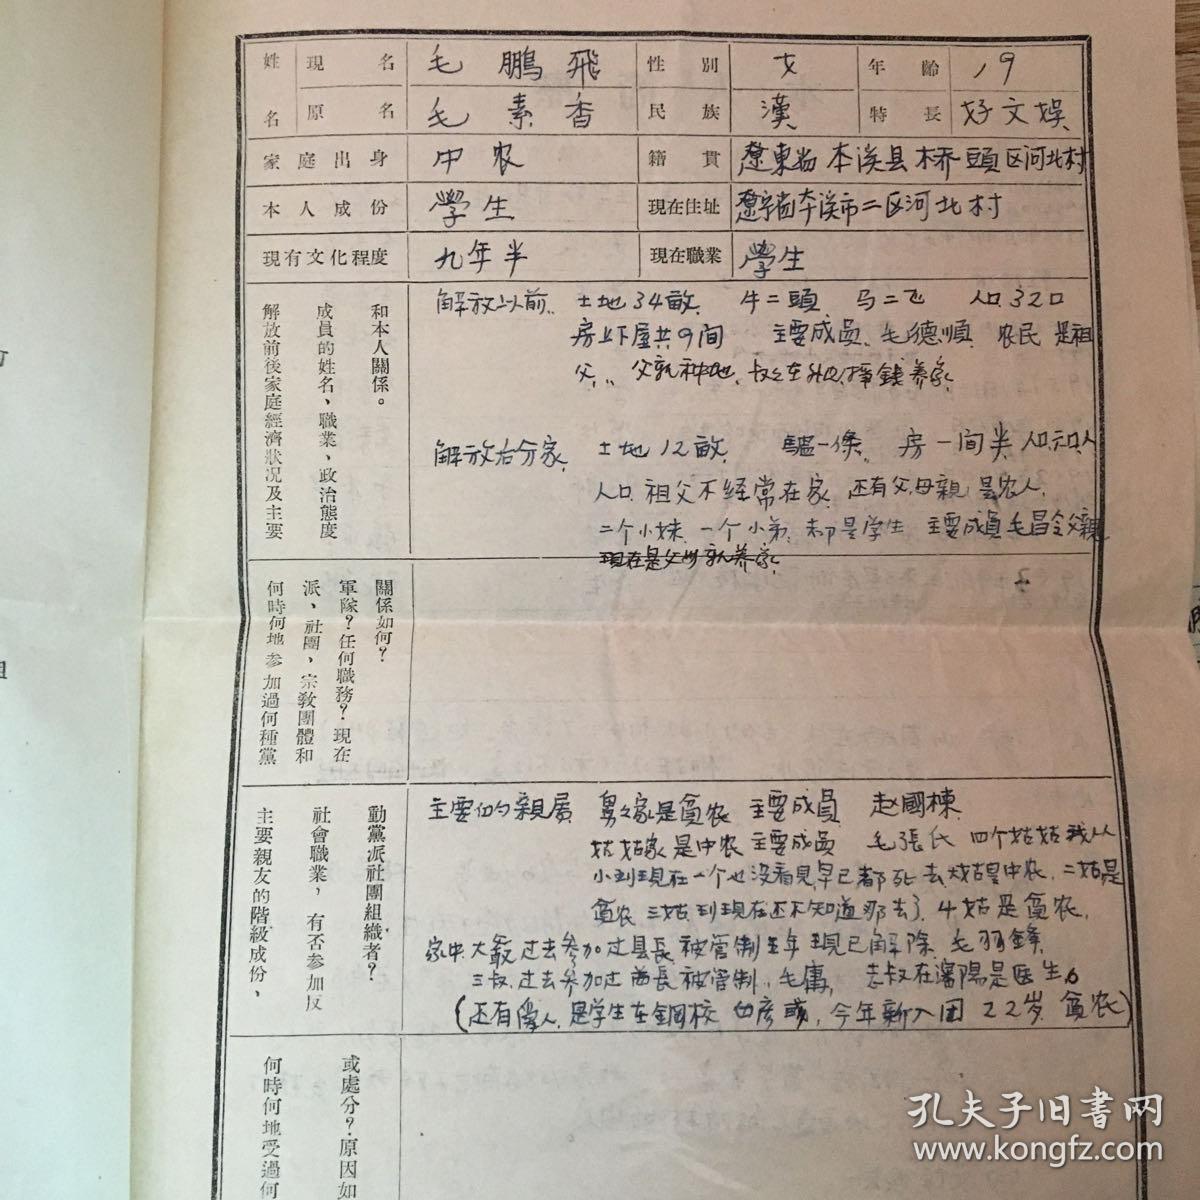 姓名 現名 毛鵬飛 性別 女 年齡 19
原名 毛素香 民族 漢 特長 好文娱
家庭出身 中农 籍貫 遼東省本溪县桥頭区河北村
本人成份 學生 現在住址 遼宁省本溪市二区河北村
現有文化程度 九年半 現在職業 學生
解放前後家庭經濟狀況及主要
成員的姓名、職業、政治態度
和本人關係。
解放以前 土地34畝 牛二頭 马二匹 人口32口
房上下屋共9间 主要成员 毛德順 农民 是祖
父 父親种地 掙錢养家
解放后分家 土地12畝 驢一條 房一间半
人口 祖父不经常在家 还有父母親 是农人
二个小妹 一个小弟 都是学生 主要成員毛昌 父親
現在是父母親养家
何時何地參加過何種黨
派、社團、宗教團體和
軍隊？任何職務？現在
關係如何？
主要親友的階級成份、
社會職業，有否參加反
動黨派社團組織者？
主要的親属 舅舅家是貧农 主要成員 赵國棟
姑姑家是中农 主要成员 毛張氏 四个姑姑我从
小到現在一个也没看見 早已都死去 大姑是中农 二姑是
貧农 三姑到現在还不知道那去了 4姑是貧农
家中大 过去参加过县長 被管制 年 現已解除 毛羽
三叔 过去参加过 長被管制 毛 叔在瀋陽是医生
(还有 人 是学生在鋼校 今年新入团 22岁 貧农)
何時何地受過何
或處分？原因如
孔夫子旧书网
www.kongfz.com